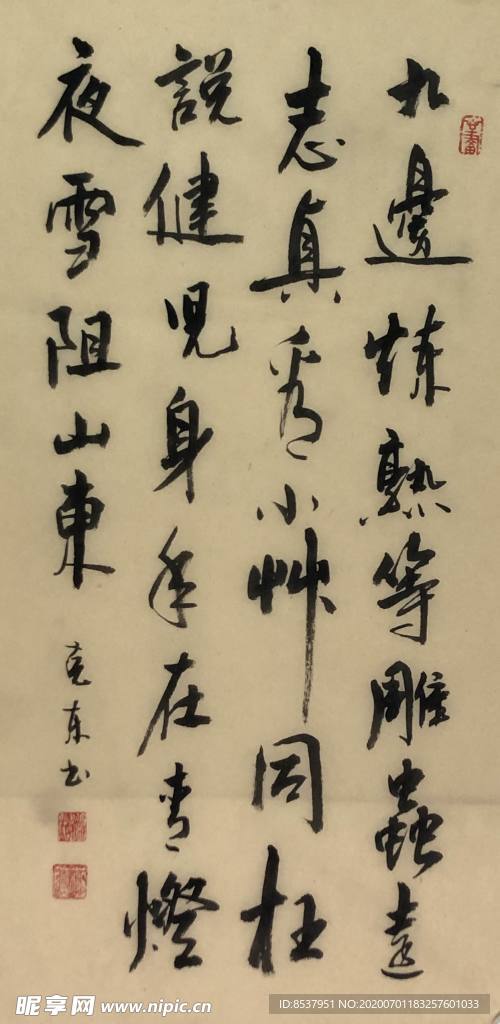 九邊煉熟等雕蟲遠
志真看小艸同枉
說健兒身手在青燈
夜雪阻山東
克东书
昵享网 www.nipic.cn
ID:8537951 NO:20200701183257601033